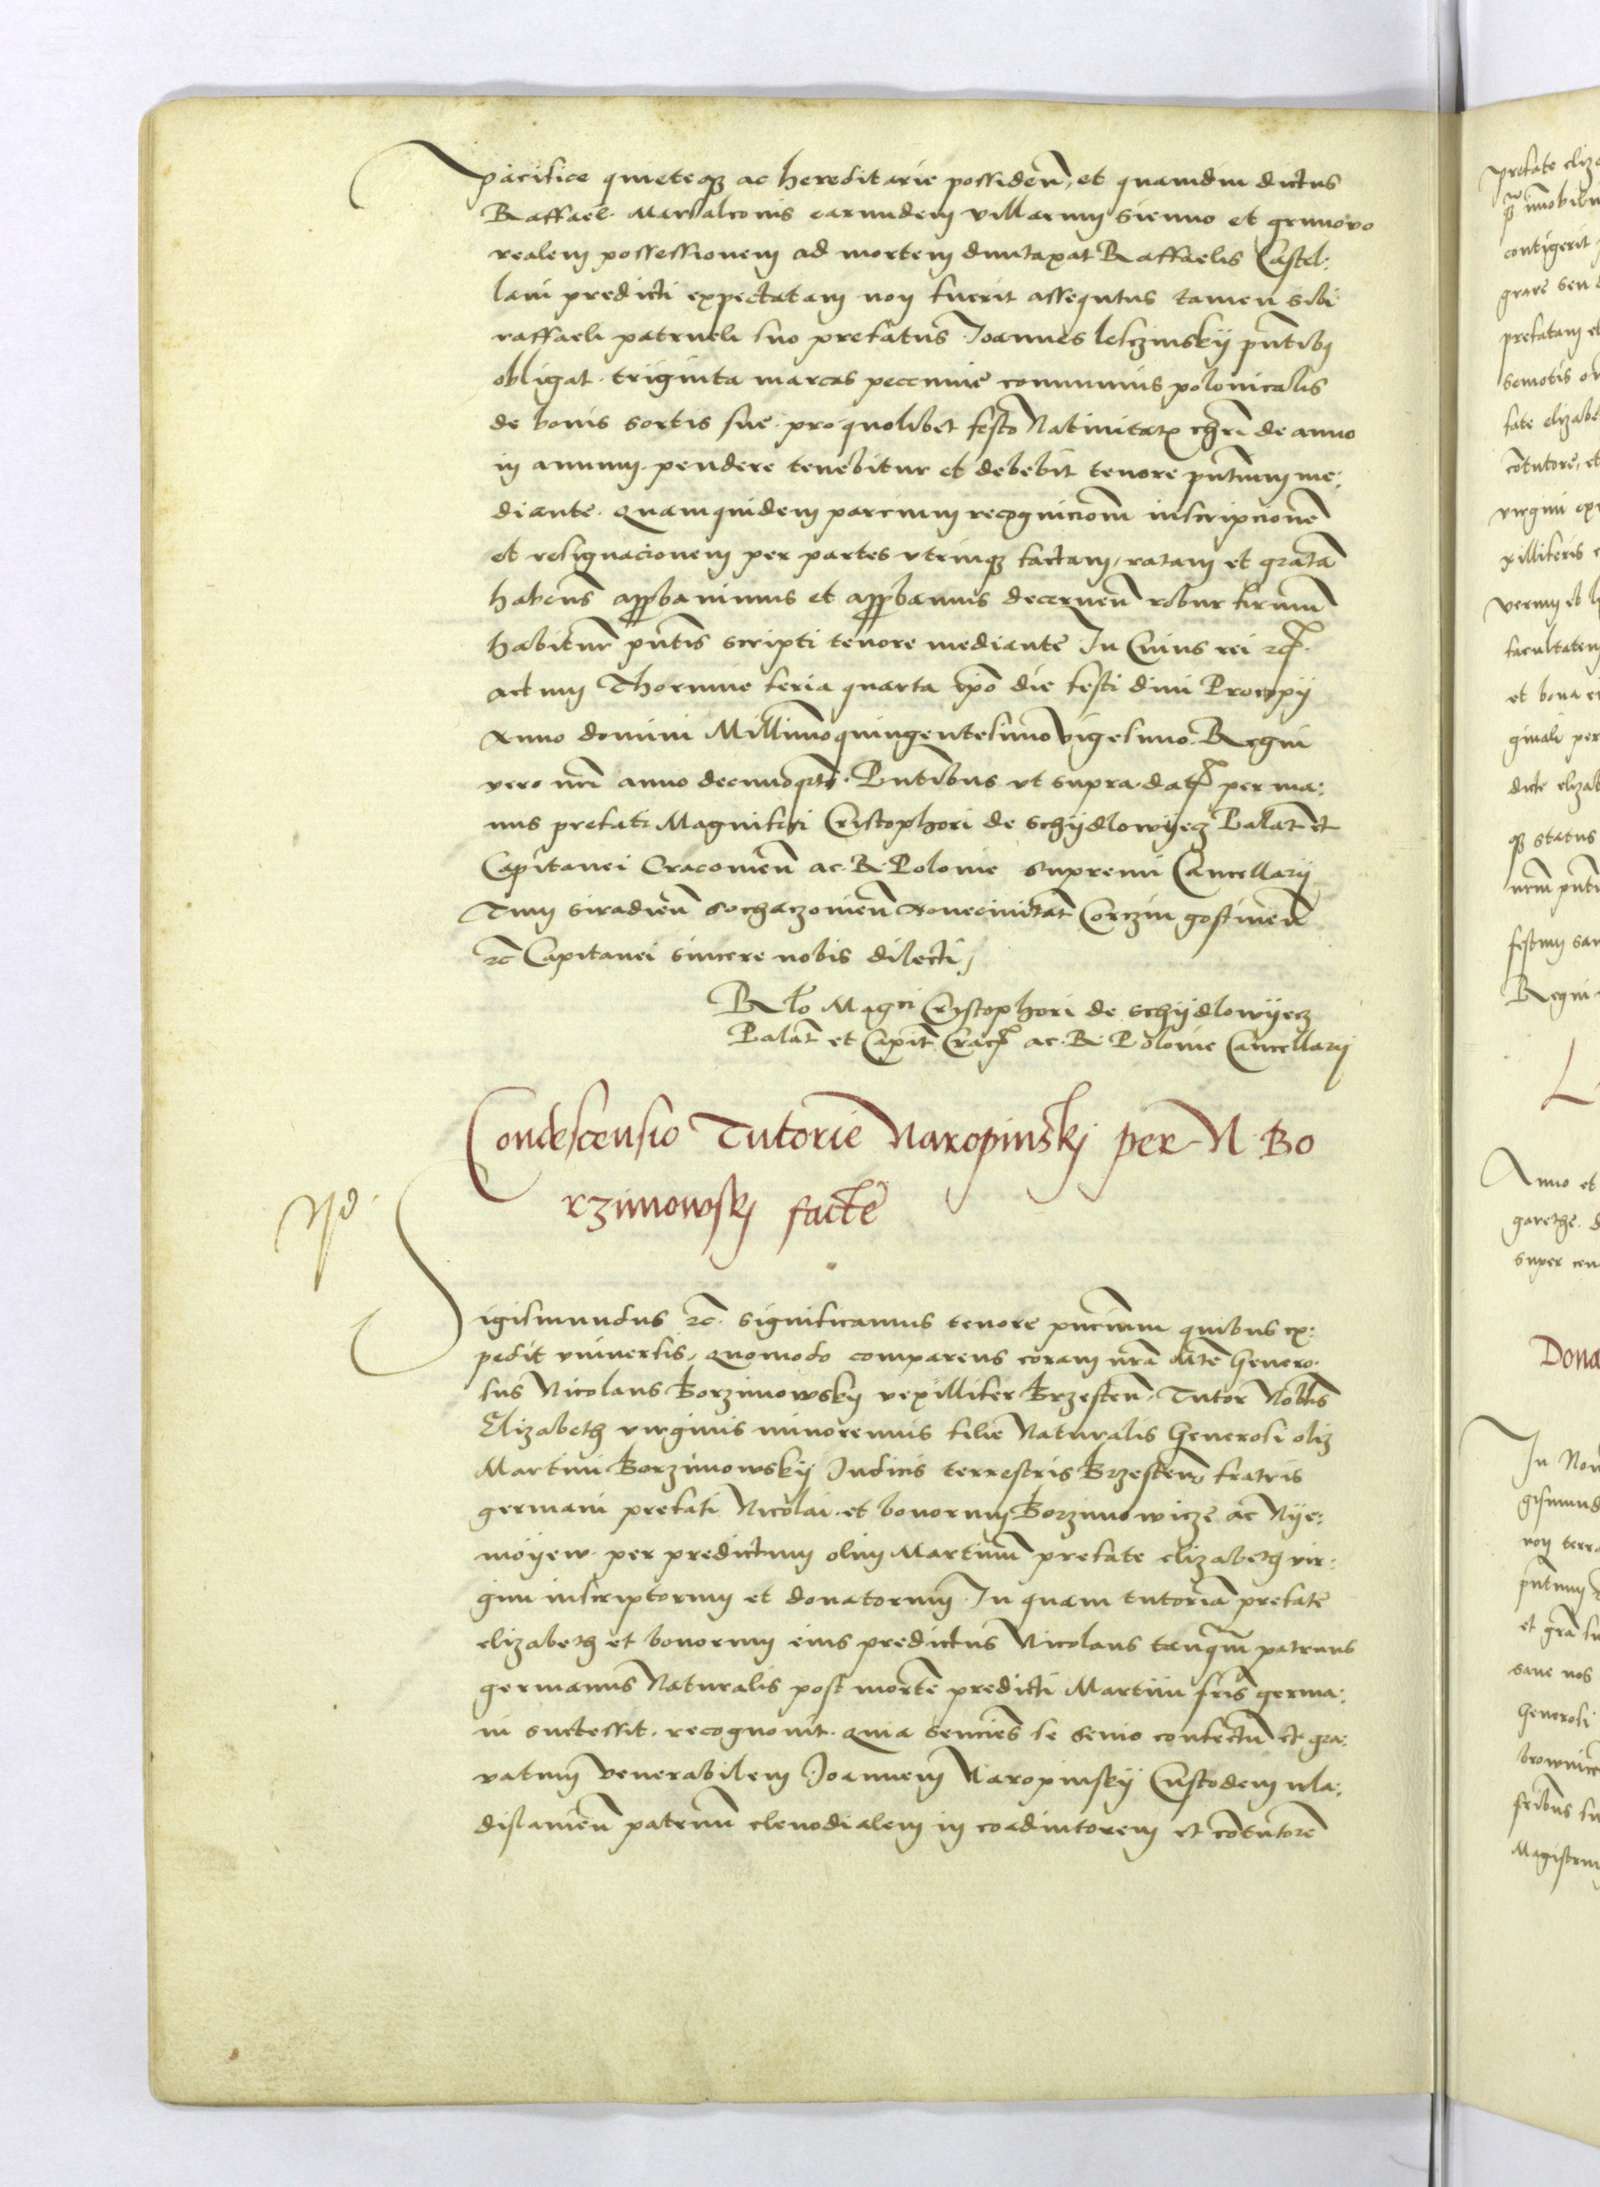 pacifice quieteq3 ac hereditarie possideñ, et quamdiu dictus
Raffael Marschalconis earundem villarum Sienno et grunovo
realem possessionem ad mortem duntaxat Raffaelis Castel:
lani predicti expectatam non fuerit assequtus tamen sibi
raffaeli patrueli suo prefatus Joannes lesczinskij pñtibus
obligat. triginta marcas pecunie communis polonicalis
de bonis sortis sue. pro quolibet festo Nativitatis chri de anno
in annum. pendere tenebitur et debebit tenore pñtium me:
diante. Quamquidem parcium recognicionem inscripcionem
et resignacionem per partes utrinq3 factam, ratam et gratã
habens approbavimus et approbamus decerneñ robur firmum
habitur pñtis scripti tenore mediante In Cuius rei etc.
actum Thorunie feria quarta ipo die festi divi Procopij
Anno domini Millimo quingentesimo vigesimo. Regni
vero nri anno decimoqrto. Pntibus ut supra. dat per ma:
nus prefati Magnifici Cristophori de Schijdlowijecz Palat et
Capitanei Cracovieñ ac. R. Polonie supremi Cancellarij
Tum siradieñ sochaczovieñ Novecivitat Corczin gostineñ
etc Capitanei sincere nobis dilecti,
Rlo Magci Cristophori de Schijdlowijecz
Palat et Capit Crac ac. R. Polonie Cancellarij
Condescensio Tutorie Naropinskj per N Bo
rzimowskj facte
Sigismundus etc. significamus tenore pñcium quibus ex:
pedit universis, quomodo comparens coram nra Mte Genero:
sus Nicolaus Borzimowskij vexillifer Brzesteñ. Tutor Nobis
Elizabeth virginis minorennis filie Naturalis Generosi olim
Martini Borzimowskij Judicis terrestris Brzesteñ fratris
germani prefati Nicolai. et bonorum Borzimowicze ac Nije:
moijew. per predictum olim Martinum prefate elizabeth vir:
gini inscriptorum et donatorum. In quam tutoriã prefate
elizabeth et bonorum eius predictus Nicolaus tanqm patruus
germanus Naturalis post mortẽ predicti Martini fris germa:
ni successit. recognovit. quia sencieñs se senio confectũ et gra:
vatum venerabilem Joannem Naropinskij Custodem wla:
dislavieñ patruũ clenodialem in coadiutorem et cõtutorẽ